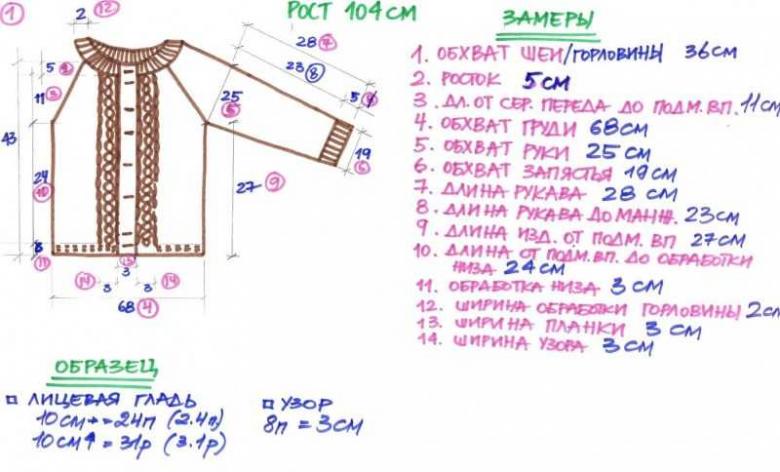 1
2 12
РОСТ 104 СМ
28 7
23 8
5 2
11 3
25
5
5 8
19
6
43
24
10
27 9
3
11
13
3
14 3 3 14
68 4
ЗАМЕРЫ
1. ОБХВАТ ШЕИ/ГОРЛОВИНЫ 36СМ
2. РОСТОК 5СМ
3. ДЛ. ОТ СЕР. ПЕРЕДА ДО ПОДМ. ВП. 11СМ
4. ОБХВАТ ГРУДИ 68СМ
5. ОБХВАТ РУКИ 25СМ
6. ОБХВАТ ЗАПЯСТЬЯ 19СМ
7. ДЛИНА РУКАВА 28 СМ
8. ДЛИНА РУКАВА ДО МАНЖ. 23СМ
9. ДЛИНА ИЗД. ОТ ПОДМ. ВП 27СМ
10. ДЛИНА ОТ ПОДМ. ВП. ДО ОБРАБОТКИ
НИЗА 24СМ
11. ОБРАБОТКА НИЗА 3 СМ
12. ШИРИНА ОБРАБОТКИ ГОРЛОВИНЫ 2см
13. ШИРИНА ПЛАНКИ 3 СМ
14. ШИРИНА УЗОРА 3СМ
ОБРАЗЕЦ
ЛИЦЕВАЯ ГЛАДЬ
10СМ → = 24П (2.4п)
10СМ ↑ = 31р (3.1р)
УЗОР
8П = 3СМ